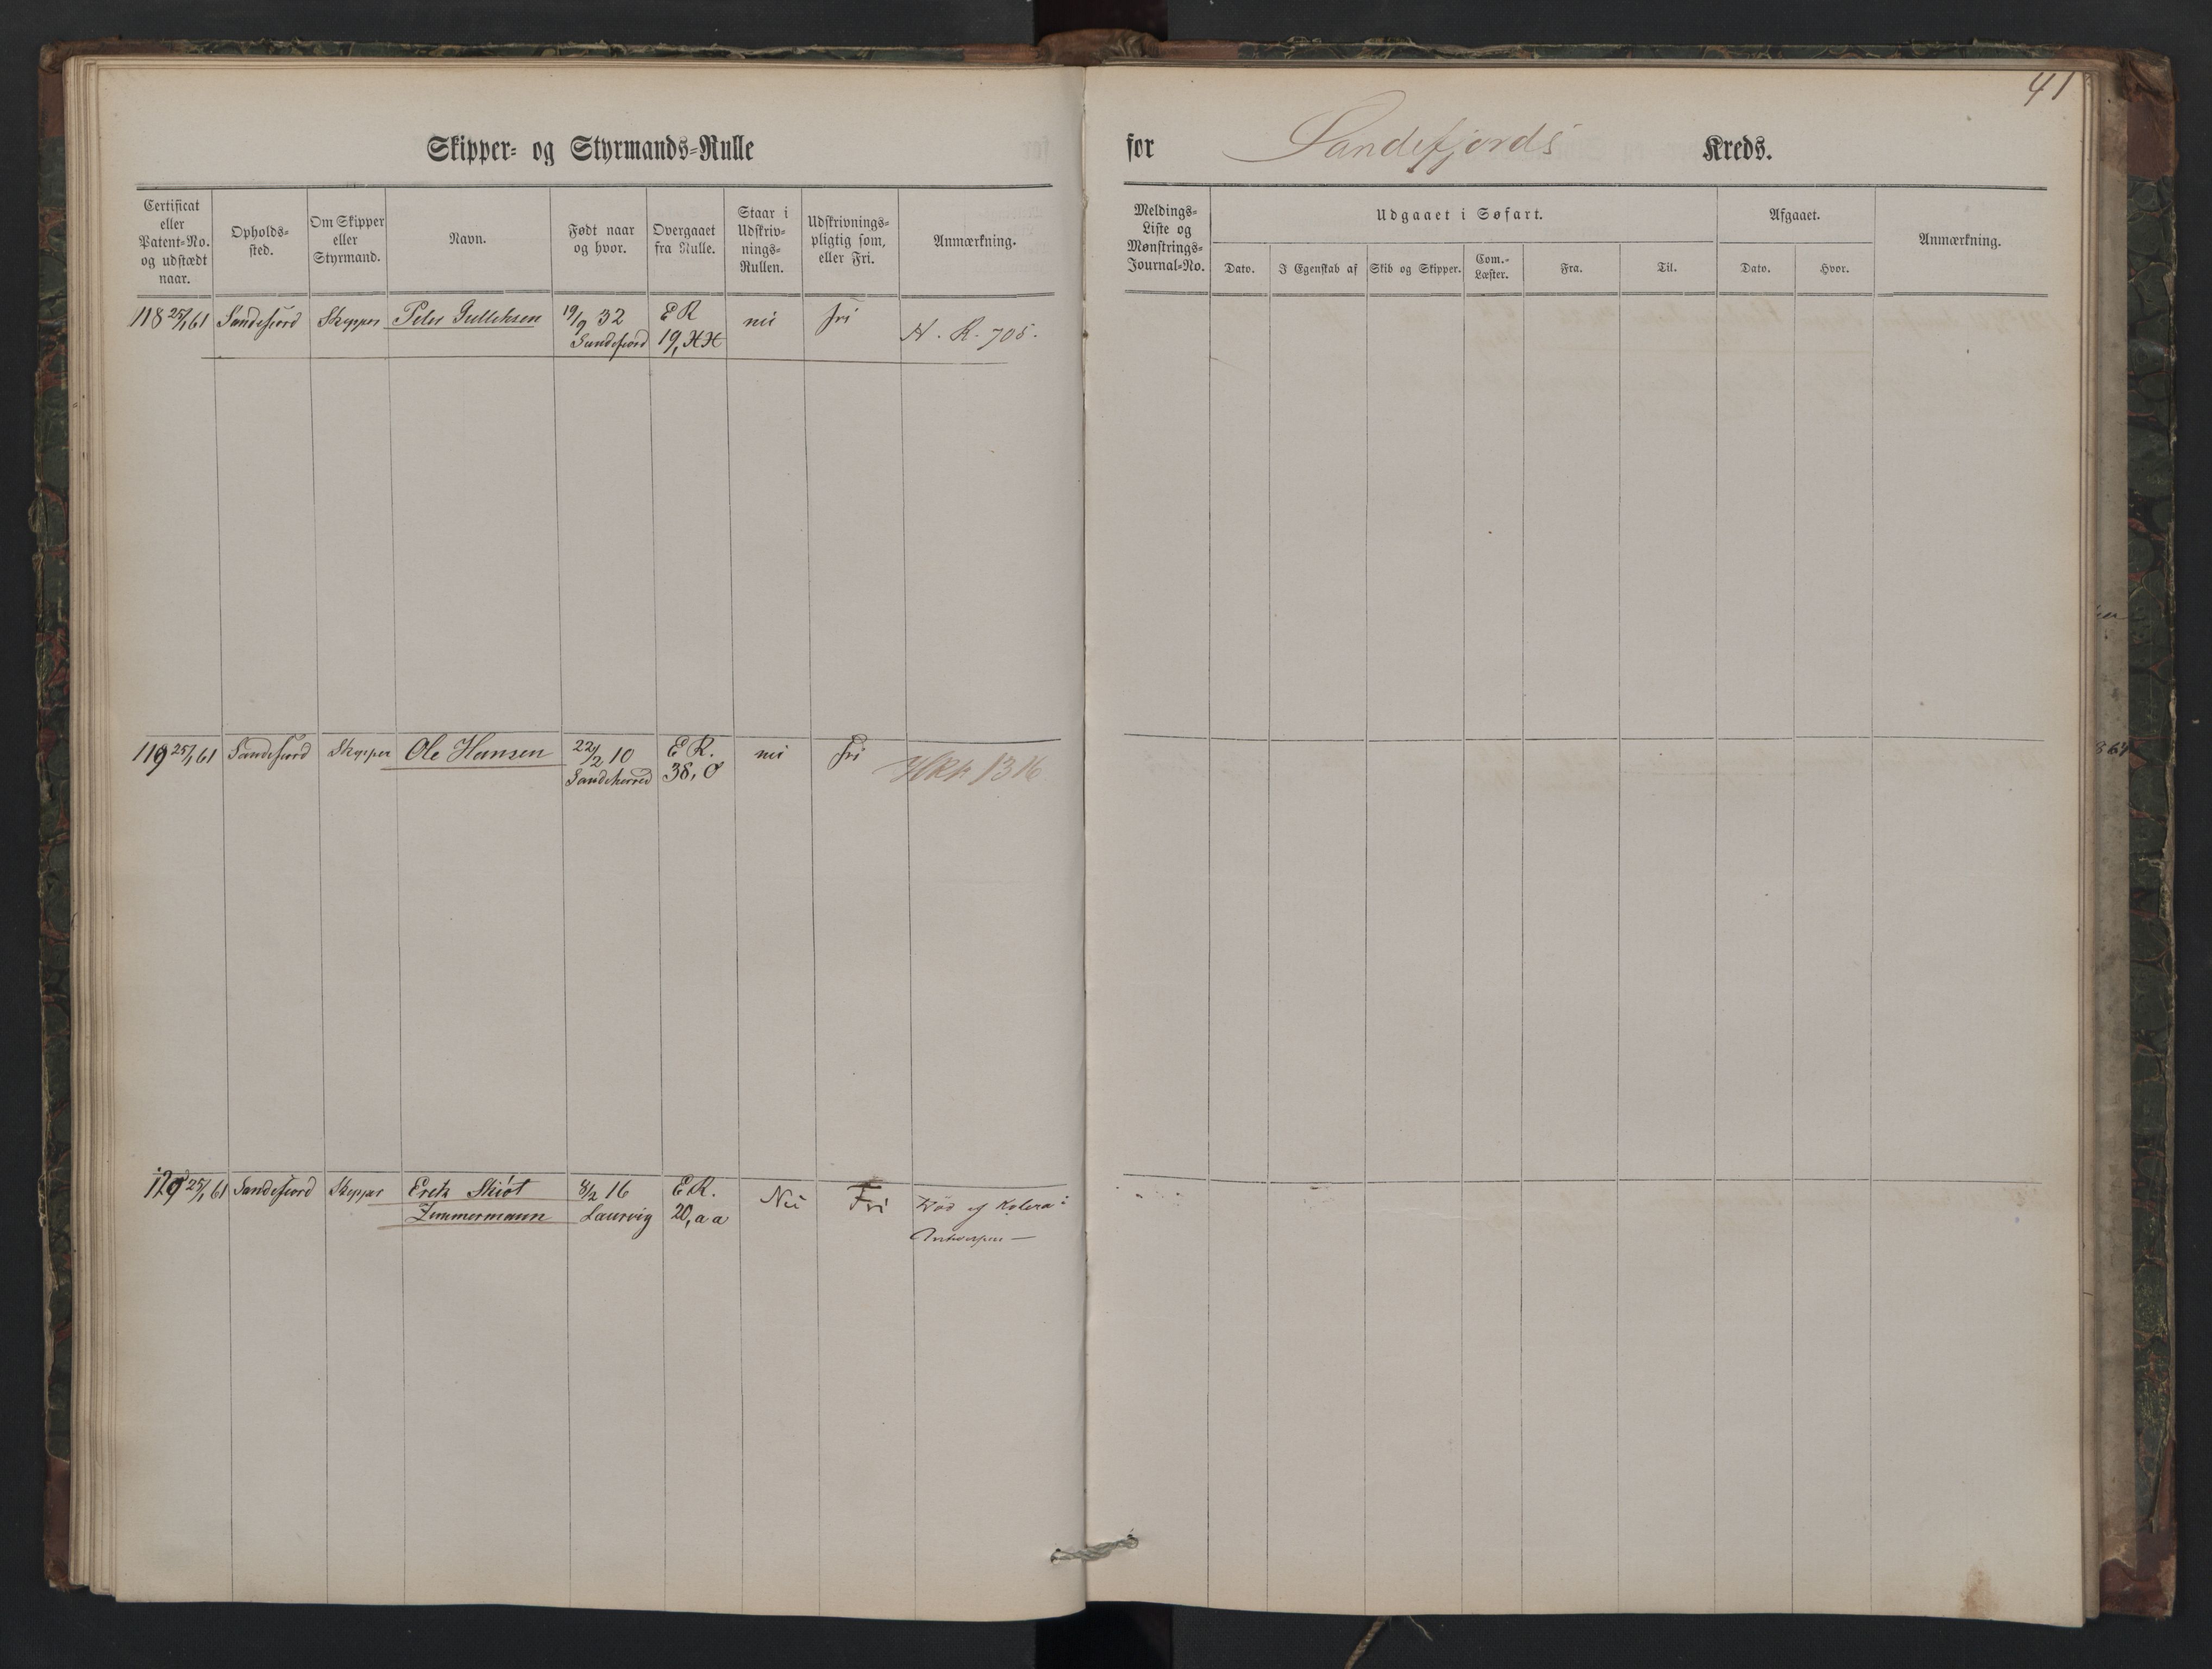 41
Skipper- og Styrmands-Rulle
for Sandefjords Kreds.
Certificat eller Patent-No. og udstædt naar.
Opholds-sted.
Om Skipper eller Styrmand.
Navn.
Født naar og hvor.
Overgaaet fra Rulle.
Staar i Udskriv-nings-Rullen.
Udskrivnings-pligtig som, eller Fri.
Anmærkning.
Meldings-Liste og Mønstrings-Journal-No.
Udgaaet i Søfart.
Dato.
I Egenskab af
Skib og Skipper.
Com.-Læster.
Fra.
Til.
Afgaaet.
Dato.
Hvor.
Anmærkning.
118 25/1 61 Sandefiord Skipper Peter Gullichsen 19/9 32 E R nei fri
Sandefiord 19, HH
H. R. 705.
119 25/1 61 Sandefiord Skipper Ole Hansen 22/2 10 E R. nei fri
Sandeherred 38, O
HRR 1316
25/1 61 Sandefiord Skipper 8/2 16 E R. Nei Fri Død af Kolera i
Zimmermann Laurvig 20, aa
Antwerpen —